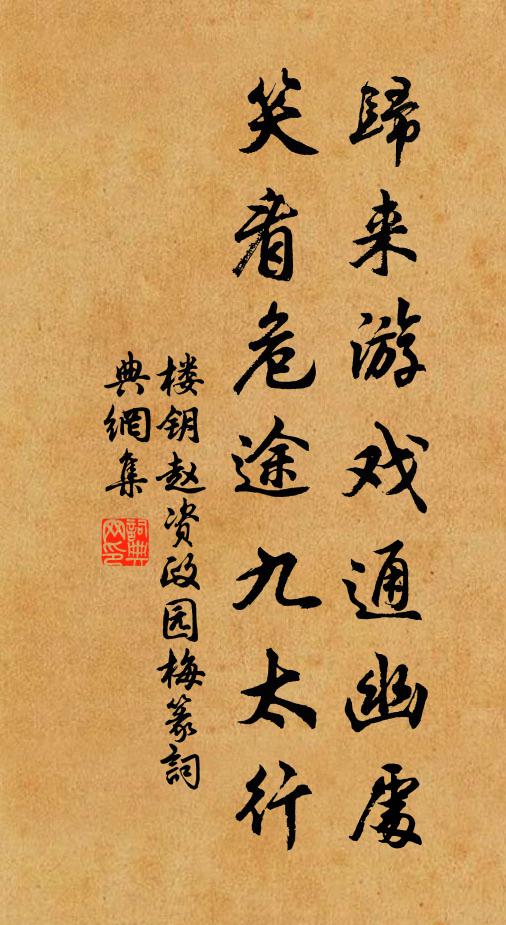 歸来游戏通幽處
笑看危途九太行
楼钥赵资政园梅篆詞
典網集
詞典网印